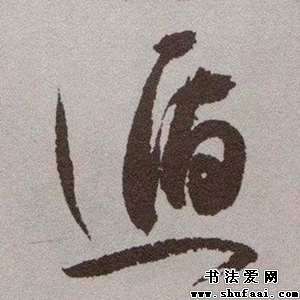 遁
书法爱网
www.shufaai.com